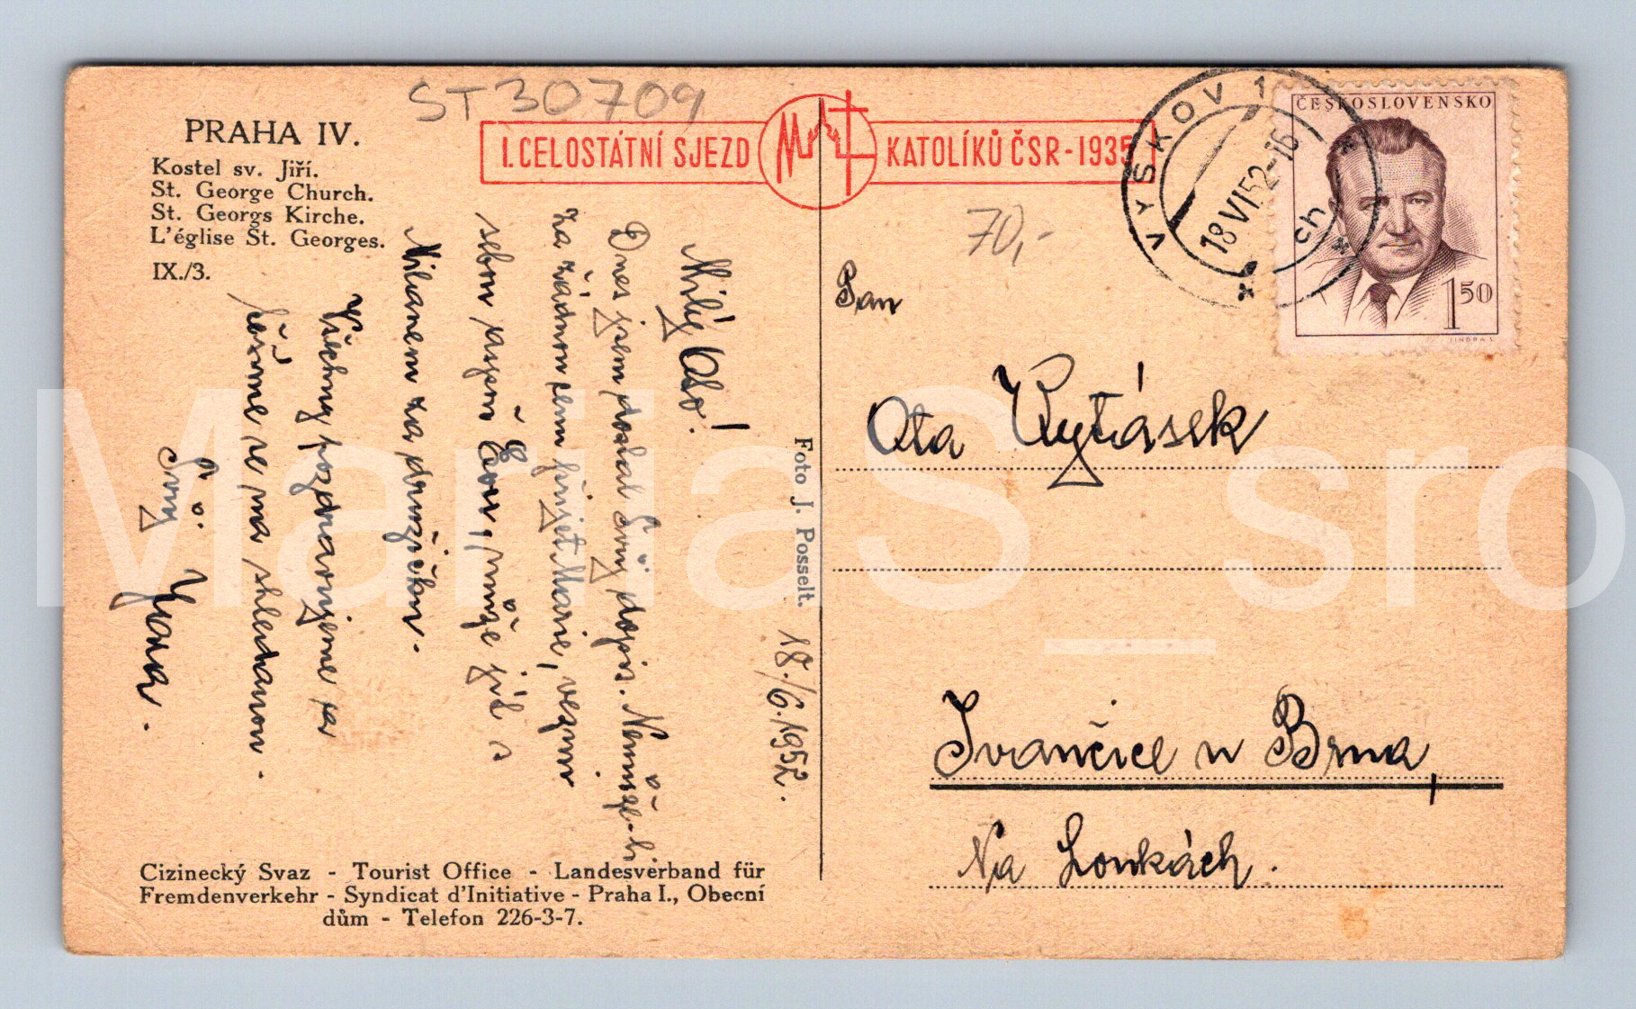 ST30709
PRAHA IV.
Kostel sv. Jiří.
St. George Church.
St. Georgs Kirche.
L'église St. Georges.
IX./3.
I. CELOSTÁTNÍ SJEZD KATOLÍKŮ ČSR - 1935
70,-
VYŠKOV 1
18 VI 52 - 16
ch
ČESKOSLOVENSKO
1 50
JINDRA S.
18./6. 1952.
Milý Oto!
Dnes jsem dostal Tvůj dopis. Nemůže-li
za žádnou cenu přijet Marie, vezmu
sebou Evu, může jít s
Milanem za družičku.
Všichni pozdravujeme a
těšíme se na shledanou.
Tvůj Jura.
Foto J. Posselt.
Pan
Ota Rytášek
Ivančice u Brna,
Na Loukách.
Cizinecký Svaz - Tourist Office - Landesverband für
Fremdenverkehr - Syndicat d'Initiative - Praha I., Obecní
dům - Telefon 226-3-7.
MariaS_sro